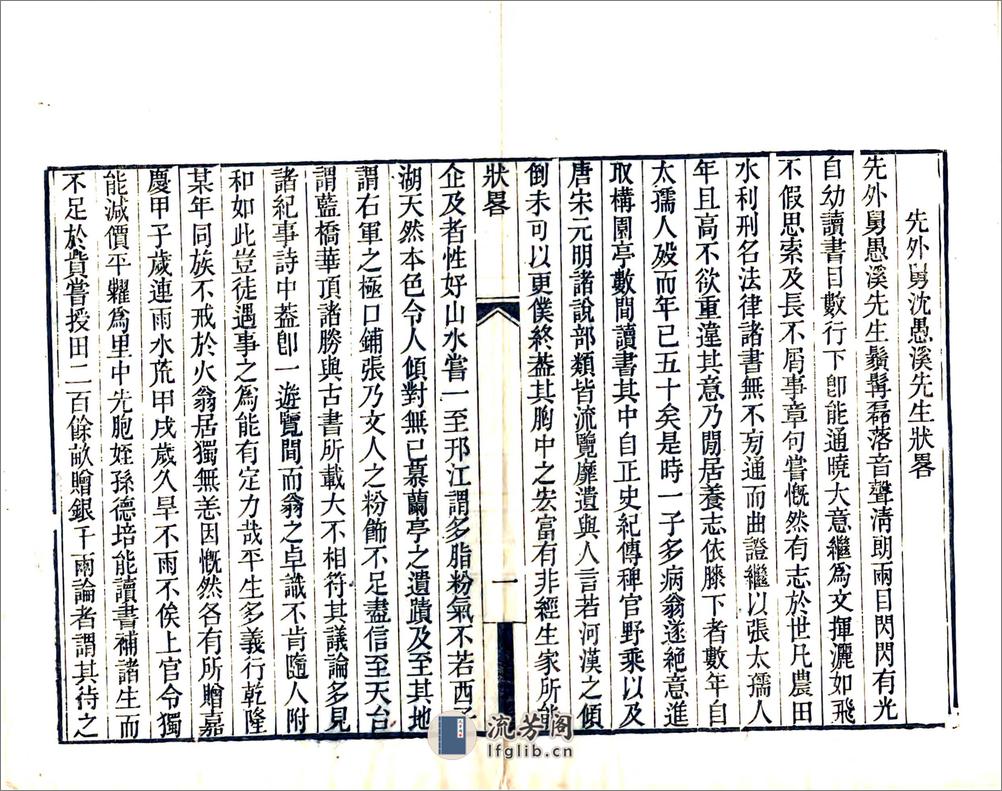 先外舅沈愚溪先生狀畧
先外舅愚溪先生鬚髯磊落音聲清朗兩目閃閃有光
自幼讀書目數行下卽能通曉大意繼為文揮灑如飛
不假思索及長不屑事章句嘗慨然有志於世凡農田
水利刑名法律諸書無不旁通而曲證繼以張太孺人
年且高不欲重違其意乃閒居養志依膝下者數年自
太孺人殁而年已五十矣是時一子多病翁遂絶意進
取構園亭數間讀書其中自正史紀傳稗官野乘以及
唐宋元明諸說部類皆流覽靡遺與人言若河漢之傾
倒未可以更僕終葢其胸中之宏富有非經生家所能
狀畧
一
企及者性好山水嘗一至邗江謂多脂粉氣不若西子
湖天然本色令人傾對無已慕蘭亭之遺蹟及至其地
謂右軍之極口鋪張乃文人之粉飾不足盡信至天台
謂藍橋華頂諸勝與古書所載大不相符其議論多見
諸紀事詩中葢卽一遊覽間而翁之卓識不肯隨人附
和如此豈徒遇事之為能有定力哉平生多義行乾隆
某年同族不戒於火翁居獨無恙因慨然各有所贈嘉
慶甲子歲連雨水荒甲戌歲久旱不雨不俟上官令獨
能減價平糶為里中先胞姪孫德培能讀書補諸生而
不足於貲嘗授田二百餘畝贈銀千兩論者謂其待之
流芳阁
lfglib.cn